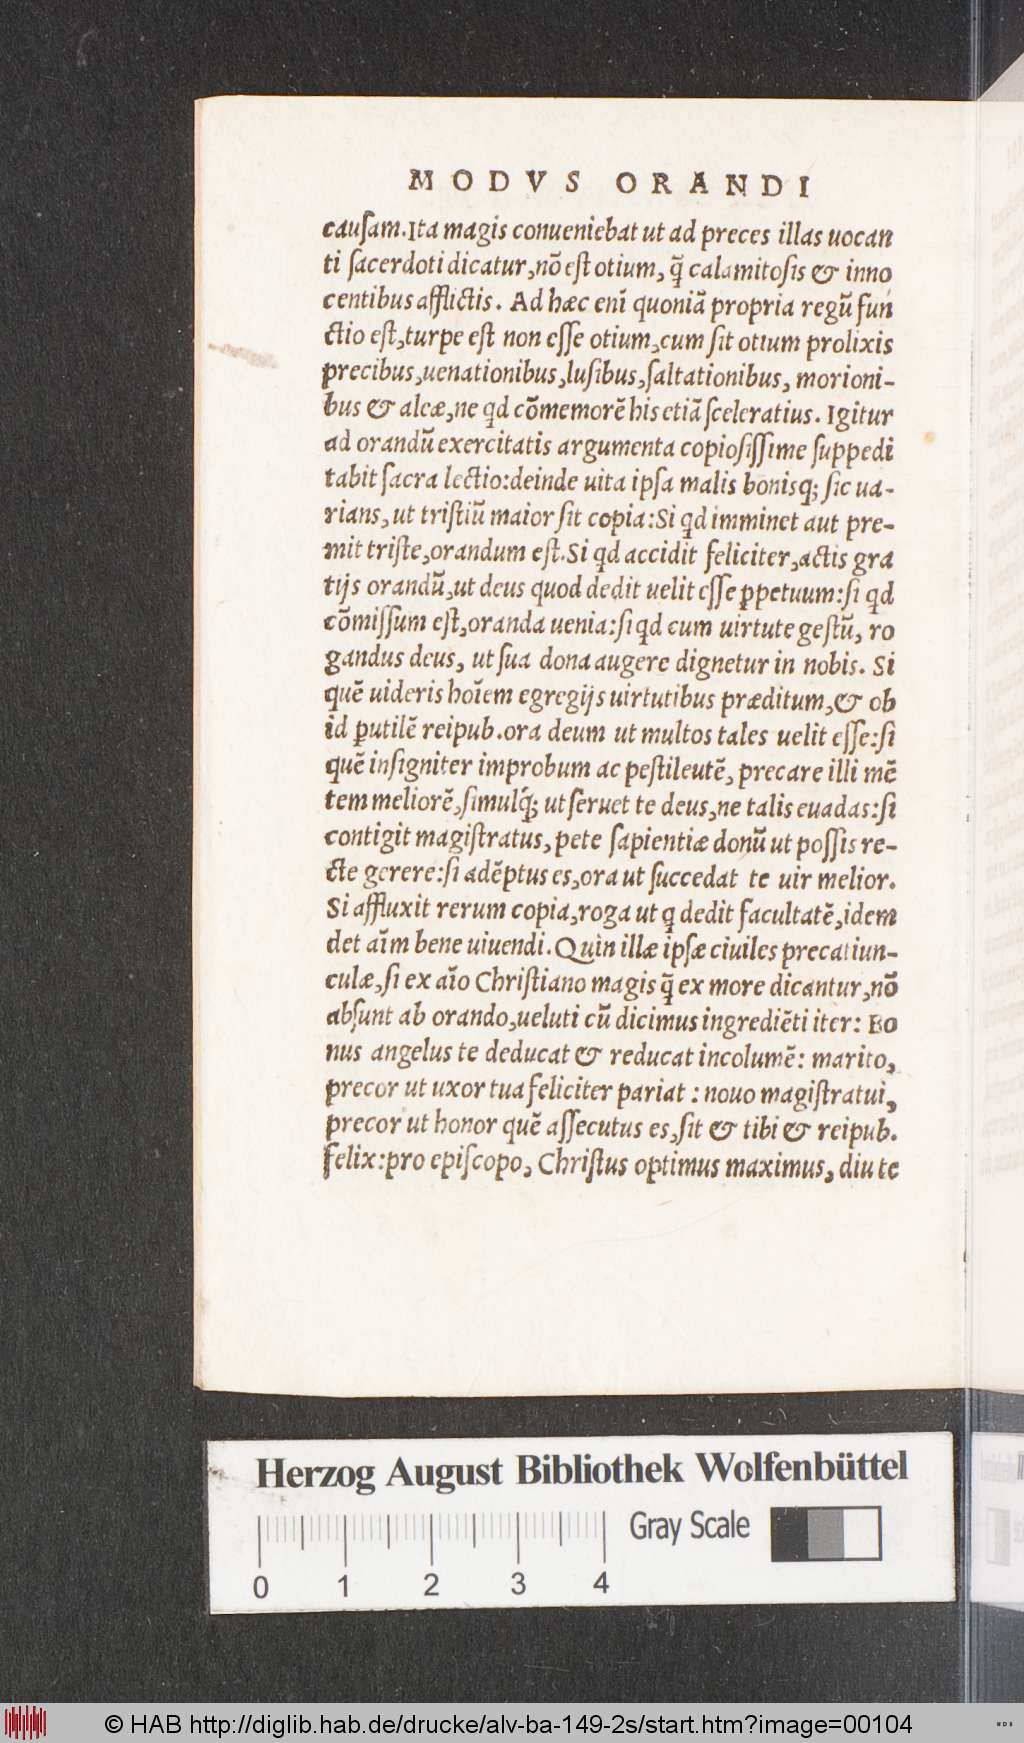 MODVS ORANDI
cauſam. Ita magis conueniebat ut ad preces illas uocan
ti ſacerdoti dicatur, nō eſt otium, q̃ calamitoſis & inno
centibus afflictis. Ad hæc enī quoniā propria regū fun
ctio eſt, turpe eſt non eſſe otium, cum ſit otium prolixis
precibus, uenationibus, luſibus, ſaltationibus, morioni-
bus & aleæ, ne qd cōmemorē his etiā ſceleratius. Igitur
ad orandū exercitatis argumenta copioſiſſime ſuppedi
tabit ſacra lectio: deinde uita ipſa malis boniſq; ſic ua-
rians, ut triſtiū maior ſit copia: Si qd imminet aut pre-
mit triſte, orandum eſt. Si qd accidit feliciter, actis gra
tijs orandū, ut deus quod dedit uelit eſſe ꝑpetuum: ſi qd
cōmiſſum eſt, oranda uenia: ſi qd cum uirtute geſtū, ro
gandus deus, ut ſua dona augere dignetur in nobis. Si
quē uideris hoīem egregijs uirtutibus præditum, & ob
id ꝑutilē reipub. ora deum ut multos tales uelit eſſe: ſi
quē inſigniter improbum ac peſtileutē, precare illi mē
tem meliorē, ſimulq́; ut ſeruet te deus, ne talis euadas: ſi
contigit magiſtratus, pete ſapientiæ donū ut poſſis re-
cte gerere: ſi adēptus es, ora ut ſuccedat te uir melior.
Si affluxit rerum copia, roga ut q dedit facultatē, idem
det aīm bene uiuendi. Quin illæ ipſæ ciuiles precatiun-
culæ, ſi ex aīo Chriſtiano magis q̃ ex more dicantur, nō
abſunt ab orando, ueluti cū dicimus ingrediēti iter: Bo
nus angelus te deducat & reducat incolumē: marito,
precor ut uxor tua feliciter pariat: nouo magiſtratui,
precor ut honor quē aſſecutus es, ſit & tibi & reipub.
felix: pro epiſcopo, Chriſtus optimus maximus, diu te
Herzog August Bibliothek Wolfenbüttel
Gray Scale
0 1 2 3 4
© HAB http://diglib.hab.de/drucke/alv-ba-149-2s/start.htm?image=00104